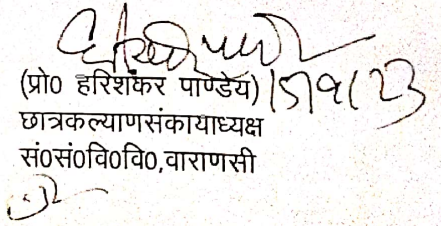 (प्रो0 हरिशंकर पाण्डेय) 15/9/23
छात्रकल्याणसंकायाध्यक्ष
सं0सं0वि0वि0,वाराणसी